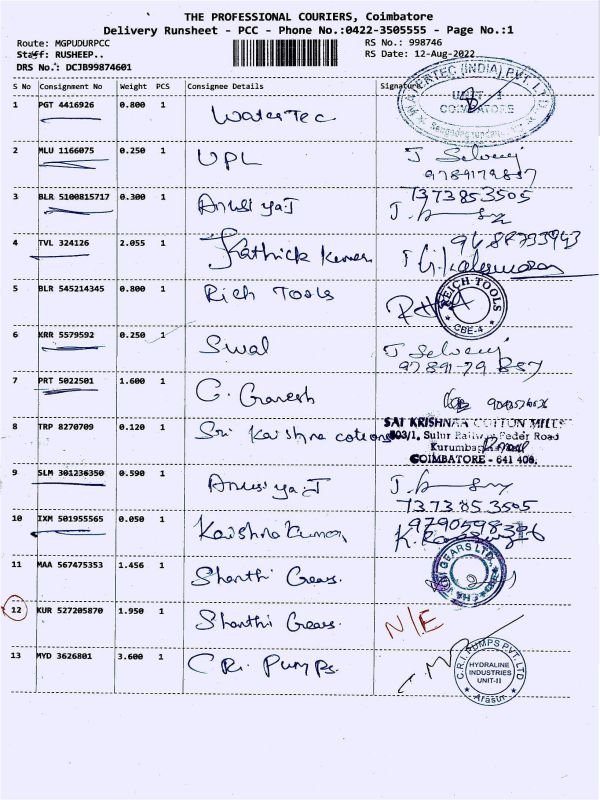 THE PROFESSIONAL COURIERS, Coimbatore
Delivery Runsheet - PCC - Phone No.:0422-3505555 - Page No.:1
Route: MGPUDURPCC RS No.: 998746
Staff: RUSHEEP.. RS Date: 12-Aug-2022
DRS No.: DCJB99874601
S No Consignment No Weight PCS Consignee Details Signature
WATERTEC (INDIA) PVT. LTD.
UNIT
COIMBATORE
1 PGT 4416926 0.800 1 WaterTec
2 MLU 1166075 0.250 1 UPL J Selvaraj
9789179857
3 BLR 5100815717 0.300 1 Anusiya J 7373853505
4 TVL 324126 2.055 1 Kathick kumar
5 BLR 545214345 0.800 1 Rich Tools
REICH TOOLS
CBE-4
6 KRR 5579592 0.250 1 Swal J Selvaraj
9789179857
7 PRT 5022501 1.600 1 G. Ganesh
8 TRP 8270709 0.120 1 Sri Kaishna cotions
SAI KRISHNAA COTTON MILLS
503/1, Sulur Railway Feder Road
COIMBATORE - 641 406.
9 SLM 301236350 0.590 1 Anusiya J
7373853505
10 IXM 501955565 0.050 1 Kaishna kumar
11 MAA 567475353 1.456 1 Shanthi Gears.
GEARS LTD.
12 KUR 527205870 1.950 1 Shanthi Gears. N/E
13 MYD 3626801 3.600 1 C.R.i. Pumps.
C.R.I. PUMPS PVT. LTD
HYDRALINE
INDUSTRIES
UNIT-II
Arasur